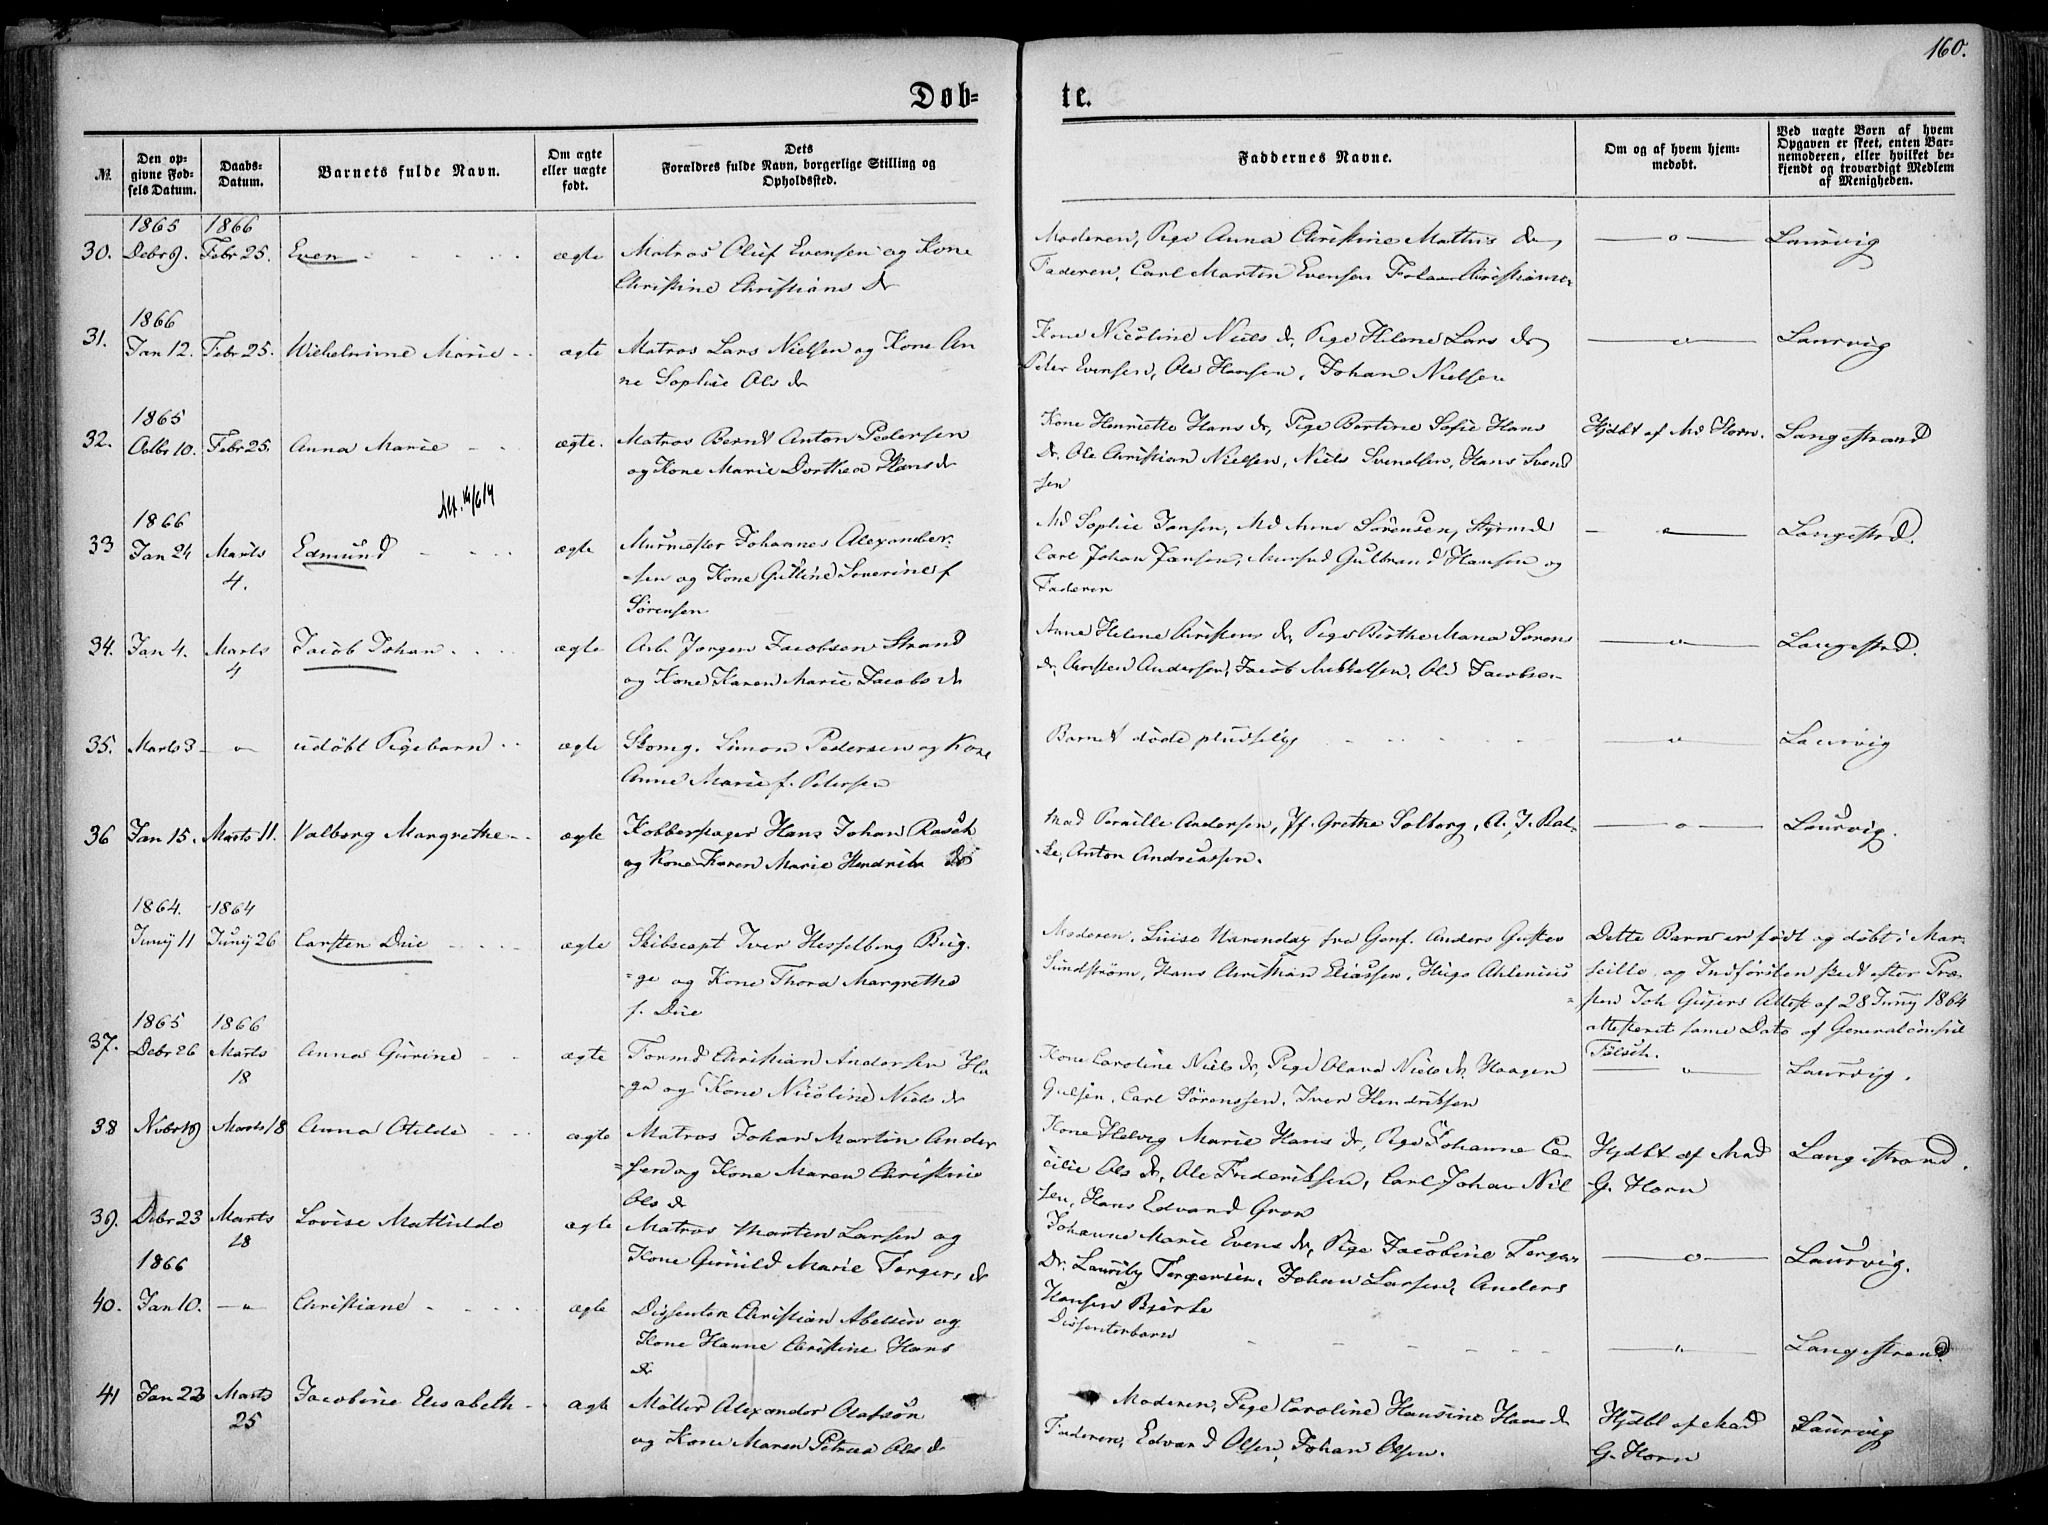 160.
Døb-
te.
№.
Den op-
givne Fød-
sels Datum.
Daabs-
Datum.
Barnets fulde Navn.
Om ægte
eller uægte
født.
Dets
Forældres fulde Navn, borgerlige Stilling og
Opholdssted.
Faddernes Navne.
Om og af hvem hjem-
medøbt.
Ved uægte Børn af hvem
Opgaven er skeet, enten Bar-
nemoderen, eller hvilket be-
kjendt og troværdigt Medlem
af Menigheden.
1865 1866
30. Debr 9. Febr 25. Even ægte Matros Oluf Evensen og Kone
Christine Christians Dr
Moderen, Pige Anna Christine Mathis Dr
Faderen, Carl Martin Evensen
Laurvig
1866
31. Jan 12. Febr 25. Wilhelmine Marie ægte Matros Lars Nielsen og Kone An
ne Sophie Ols Dr
Kone Nicoline Niels Dr, Pige Helene Lars Dr
Peder Evensen, Ole Hansen, Johan Nielsen
Laurvig
1865
32. Octbr 10. Febr 25. Anna Marie ægte. Matros Bernt Anton Pedersen
og Kone Marie Dorthea Hans dr
Kone Henriette Hans Dr, Pige Bertine Sofie Hans
Dr. Ole Christian Nielsen, Niels Svendsen, Hans Svend
sen
Hjdbt af Md Horn.
Langestrand
Att. 19/6 14
1866
33 Jan 24 Marts
4.
Edmund ægte Murmester Johannes Alexander-
=sen og Kone Gulline Severine f
Sørensen
Md Sophie Jansen, Md Anne Sørensen, Styrmd
Carl Johan Jansen, Mursvd Gulbrand Hansen og
Faderen
Langestrd.
34. Jan 4. Marts
4
Jacob Johan ægte Arb. Jørgen Jacobsen Strand
og Kone Karen Marie Jacobs dr
Anne Helene Christens Dr, Pige Birthe Maria Sørens
dr, Christen Andersen, Jacob Mikkelsen, Ole Jacobsen
Langestrd.
35. Marts 3 udøbt Pigebarn ægte Skomg. Simon Pedersen og Kone
Anne Marie f. Petersen
Barnet døde pludselig
Laurvig
36 Jan 15. Marts 11. Valborg Margrethe ægte Kobberslager Hans Johan Rasch
og Kone Karen Marie Hendriks Dr
Mad Pernille Andersen, Jf. Grethe Solberg, A. J. Ras-
ke, Anton Andreassen.
Laurvig.
1864. 1864
Junij 11 Junij 26 Carsten Due ægte Skibscapt Iver Hesselberg Bug-
=ge og Kone Thora Margrethe
f. Due
Moderen, Luise Narenday fra Genf. Anders Gustav
Sundstrøm, Hans Christian Eliassen, Hugo Ahlenius
Dette Barn er født og døbt i Mar-
seille, og Indførslen skeet efter Præ-
sten Joh Gujers Attest af 28 Junij 1864
attesteret samme Dato af Generalconsul
Fölsch.
1865 1866
37. Debr 26 Marts
18
Anna Gurine ægte Tormd Christian Andersen Ha
=ga og Kone Nicoline Niels dr
Kone Caroline Niels dr, Pige Olava Niels dr. Haagen
Gulsen, Carl Sørenssen, Iver Hendriksen
Laurvig.
38 Nvbr 19 Marts 18 Anna Otilde ægte Matros Johan Martin Ander
=sen og Kone Maren Christine
Ols d
Kone Helvig Marie Hans dr, Pige Johanne Ce-
cilie Ols Dr, Ole Frederiksen, Carl Johan Niel
sen, Hans Edvard Gron
Hjdbt af Mad
G. Horn
Langestrand.
39. Debr 23 Marts
18
Lovise Mathilde ægte Matros Morten Larsen og
Kone Gunild Marie Torgers dr
Johanne Marie Evens dr, Pige Jacobine Torgers
Dr. Lauritz Torgersen, Johan Larsen, Anders
Hansen Bjerke
Laurvig.
1866
40. Jan 10. Christiane ægte Dissenter Christian Abelsen og
Kone Hanne Christine Hans
Dr
Dissenterbarn
Langestrand
41 Jan 23 Marts
25
Jacobine Elisabeth ægte Møller Alexander Olafsøn
og Kone Maren Petrea Ols d
Moderen, Pige Caroline Hansine Hans d
Faderen, Edvard Olsen, Johan Olsen.
Hjdbt af Mad
G. Horn
Laurvig